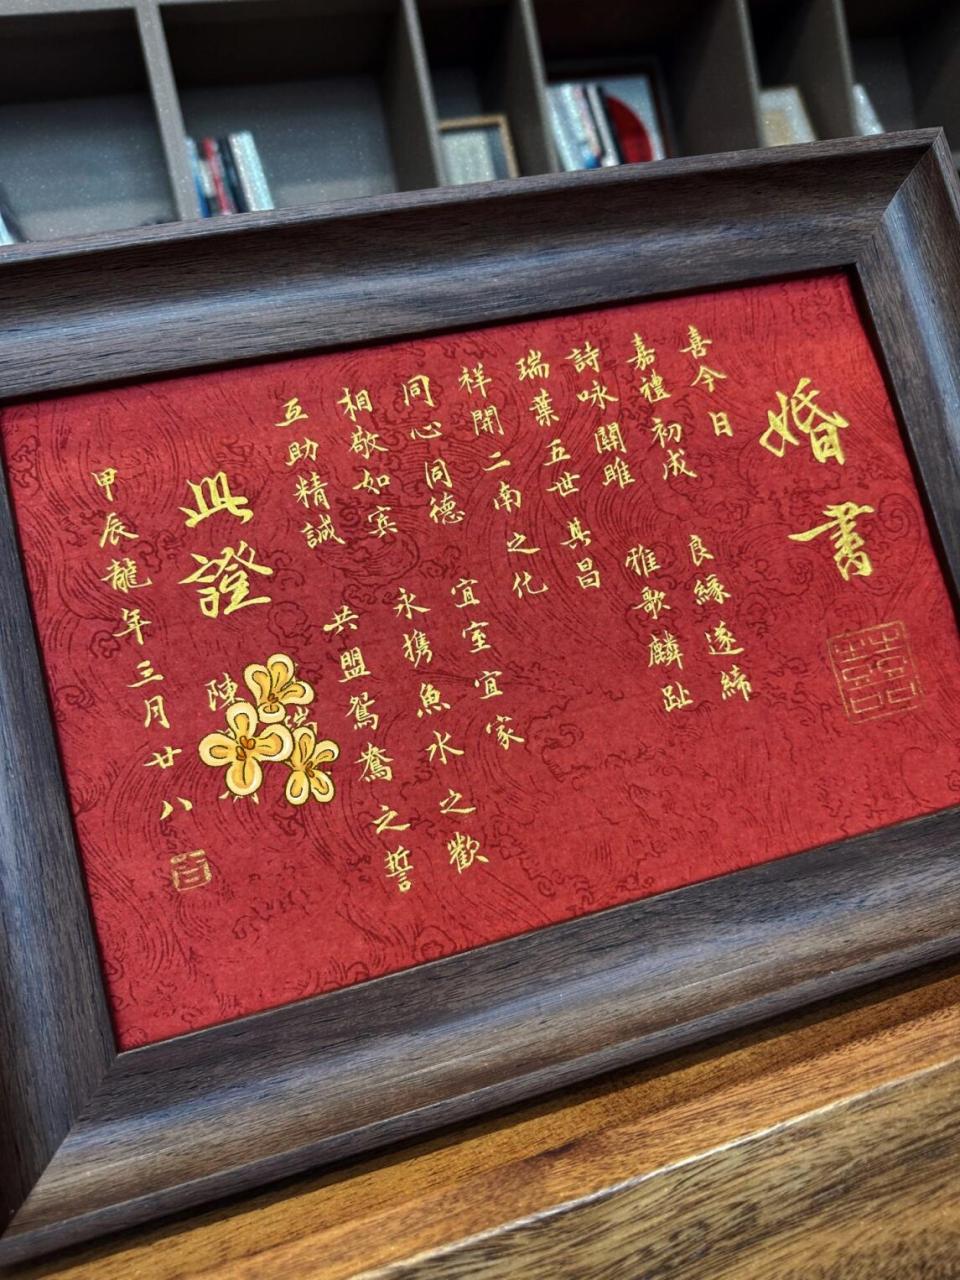 婚書
喜今日
嘉禮初成 良緣遂締
詩咏關雎 雅歌麟趾
瑞葉五世其昌
祥開二南之化
同心同德 宜室宜家
相敬如賓 永攜魚水之歡
互助精誠 共盟鴛鴦之誓
此證
陳
甲辰龍年三月廿八